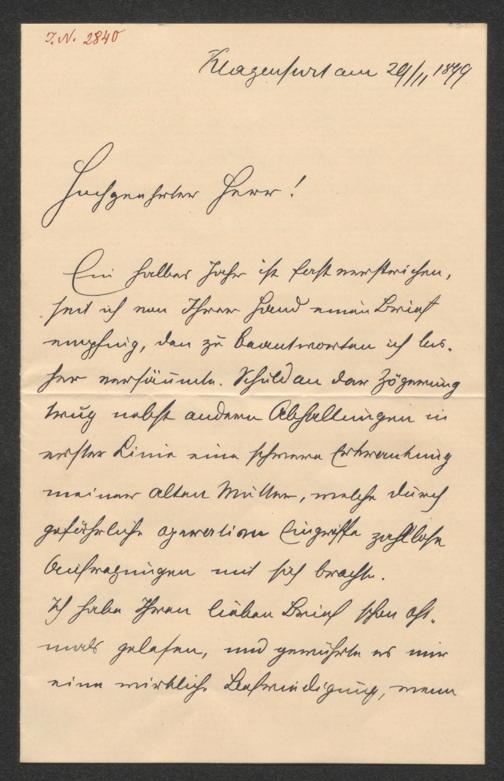 I. N. 2840
Klagenfurt am 29/11 1899
Hochgeehrter Herr!
Ein halbes Jahr ist fast verstrichen,
seit ich von Ihrer Hand einen Brief
empfing, den zu beantworten ich bis-
her versäumte. Schuld an der Zögerung
trug nebst andern Abhaltungen in
erster Linie eine schwere Erkrankung
meiner alten Mutter, welche durch
gefährliche operative Eingriffe zahllose
Aufregungen mit sich brachte.
Ich habe Ihren lieben Brief schon oft-
mals gelesen, und gewährte es mir
eine wirkliche Befriedigung, wenn